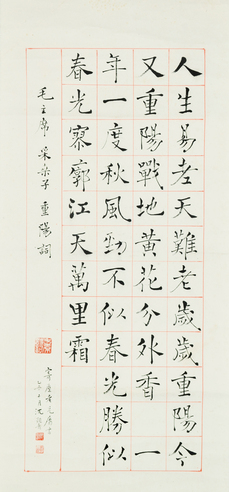 人生易老天難老歲歲重陽今
又重陽戰地黃花分外香一
年一度秋風勁不似春光勝似
春光寥廓江天萬里霜
毛主席采桑子重陽詞